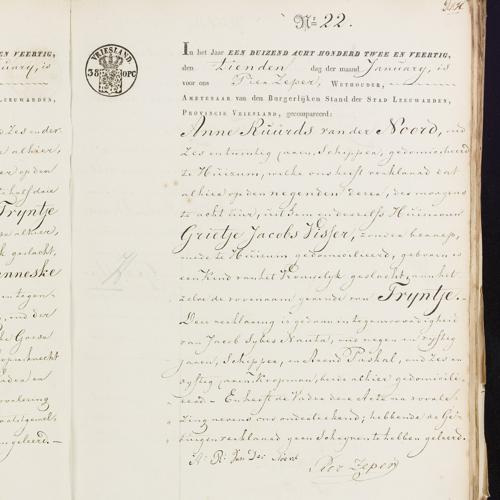 N<sup>o</sup> 22.
In het Jaar EEN DUIZEND ACHT HONDERD TWEE EN VEERTIG,
den tienden dag der maand January, is
voor ons Pier Zeper, WETHOUDER,
AMBTENAAR van den Burgerlijken Stand der STAD LEEUWARDEN,
PROVINCIE VRIESLAND, gecompareerd:
Anne Ruurds van der Noord, oud
zes en twintig jaren, Schipper, gedomicilieerd
te Huizum, welke ons heeft verklaard dat
alhier op den negenden dezer, des morgens
te acht uur, uit hem en deszelfs Huisvrouw
Grietje Jacobs Visser, zonder beroep,
mede te Huizum gedomicilieerd, geboren is
een Kind van het Vrouwelijk geslacht, aan het
zelve de voornaam gevende van Tryntje.
Deze verklaring is gedaan in tegenwoordigheid
van Jacob Sybes Nauta, oud negen en vyftig
jaren, Schipper, en Arend Paskal, oud zes en
vyftig jaren Koopman, beide alhier gedomicili-
eerd. En heeft de Vader deze Acte na voorle-
zing nevens ons onderteekend; hebbende de Ge-
tuigen verklaard geen Schryven te hebben geleerd.
A: R: Van Der Noord
Pier Zeper
VRIESLAND
38 OPC
EN VEERTIG,
nuary, is
LEEUWARDEN,
alhier,
Tryntje
geslacht,
anneske
in tegen-
geleerd.